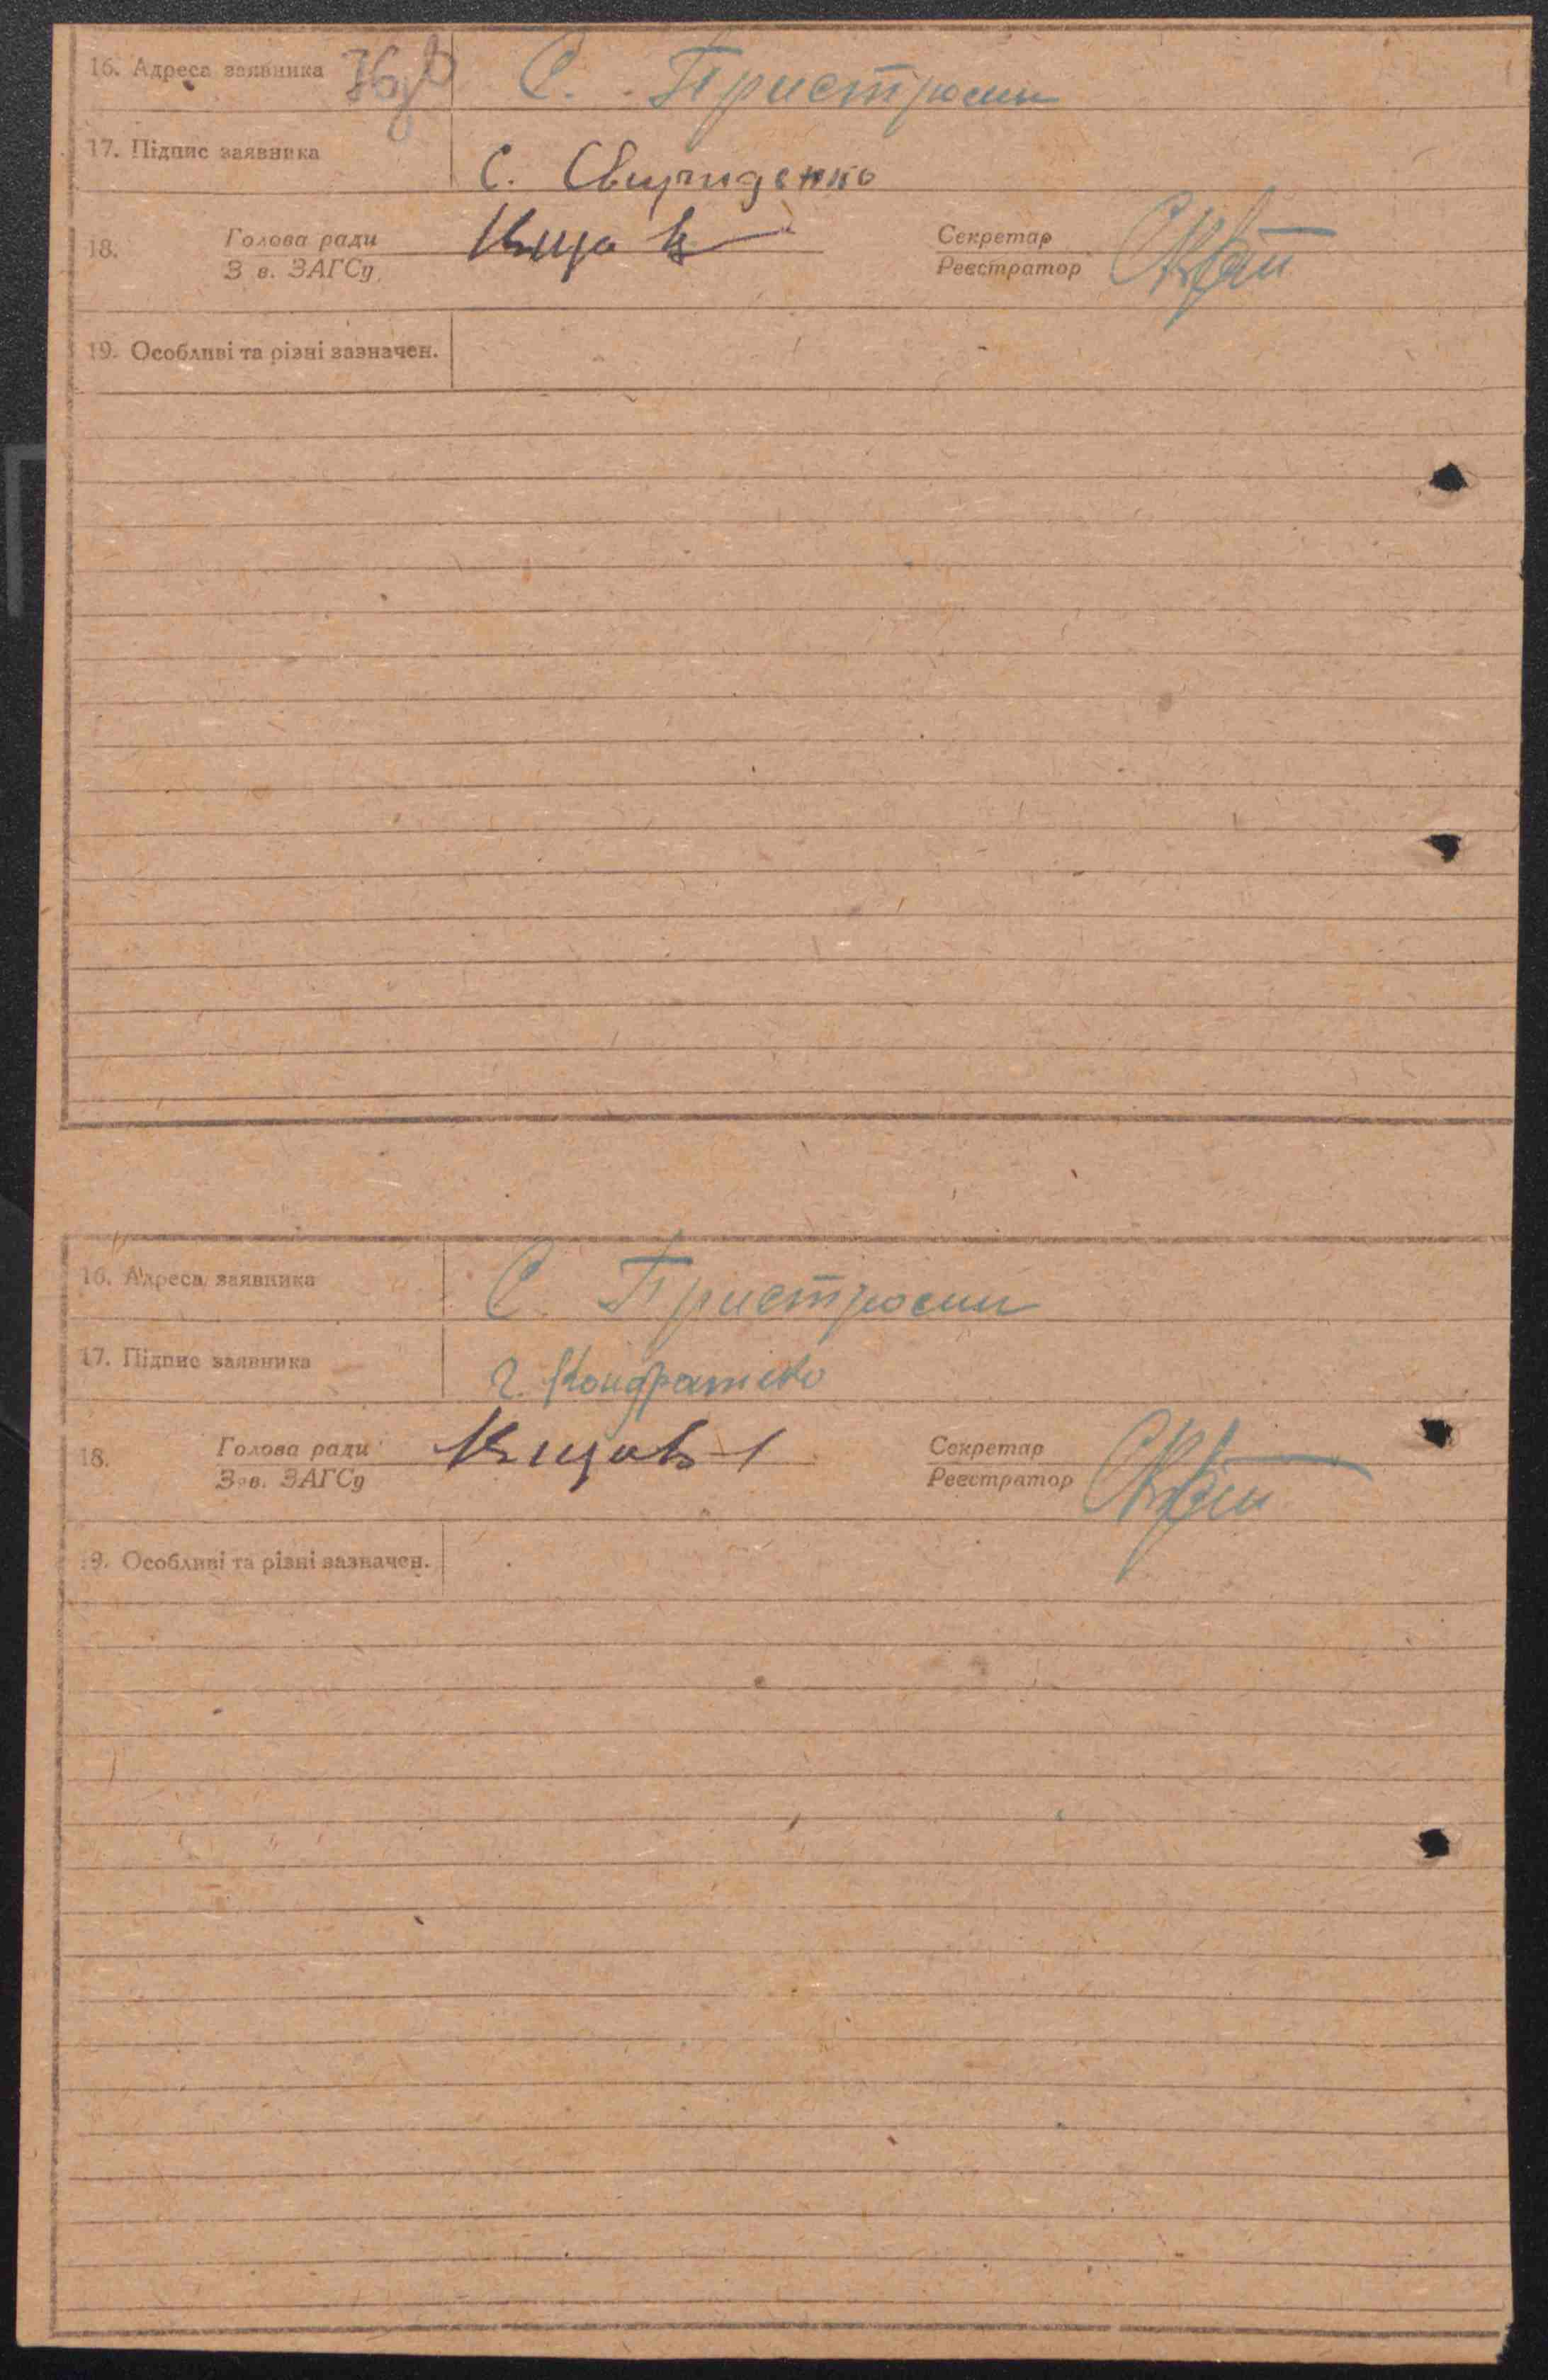 16. Адреса заявника 76зв С. Пристроми
17. Підпис заявника С. Свириденко
18. Голова ради Секретар
З в. ЗАГСу Реєстратор
19. Особливі та різні зазначен.
16. Адреса заявника С. Пристроми
17. Підпис заявника г. Кондратенко
18. Голова ради Секретар
Зав. ЗАГСу Реєстратор
19. Особливі та різні зазначен.